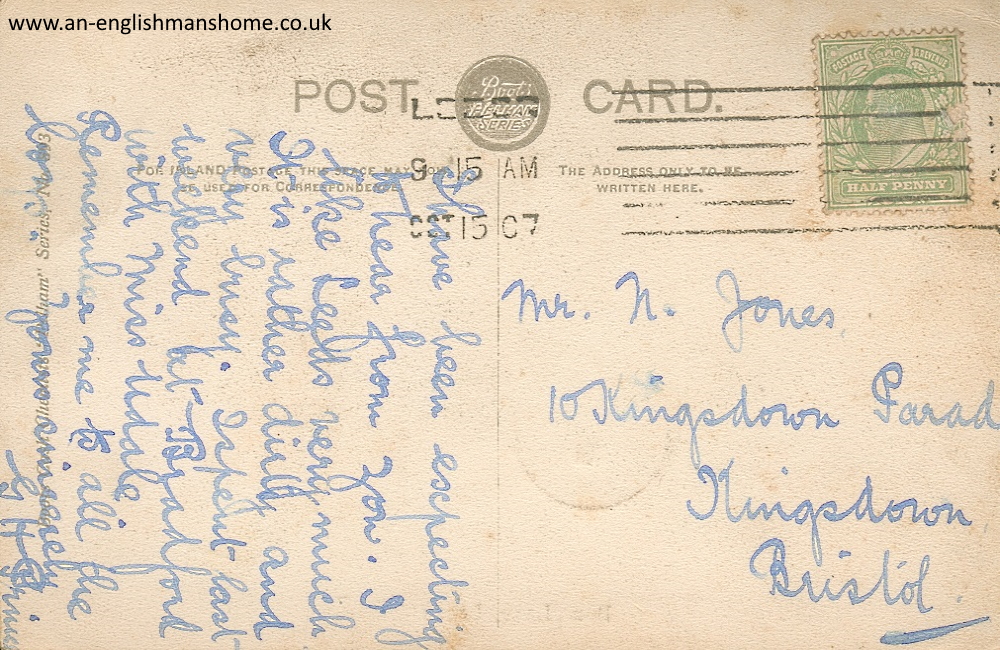 www.an-englishmanshome.co.uk
POST CARD.
Boots
PELHAM
SERIES
FOR INLAND POSTAGE THIS SPACE MAY NOW
BE USED FOR CORRESPONDENCE.
THE ADDRESS ONLY TO BE
WRITTEN HERE.
LEEDS
9 15 AM
OCT 15 07
POSTAGE REVENUE
HALF PENNY
I have been expecting
to hear from you. I
like Leeds very much
It is rather dirty and
very busy. I spent last
weekend at Bradford
with Miss
Remember me to all the
boys.
Yours sincerely
G H
"Pelham" Series. No.
Mr. N. Jones
10 Kingsdown Parad
Kingsdown
Bristol.